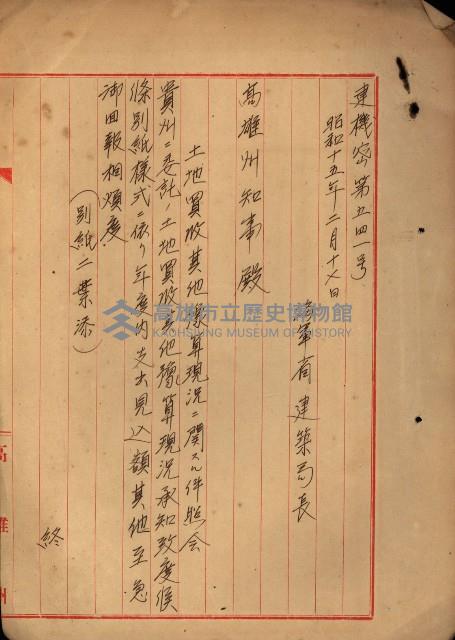 建機密第五四一号
昭和十五年二月十七日
海軍省建築局長
高雄州知事殿
土地買收其他豫算現況ニ関スル件照会
貴州ニ委託ノ土地買收其他豫算現況承知致度候
條別紙樣式ニ依リ年度内支出見込額其他至急
御回報相煩度
（別紙二葉添）
終
高雄州
高雄市立歷史博物館
KAOHSIUNG MUSEUM OF HISTORY